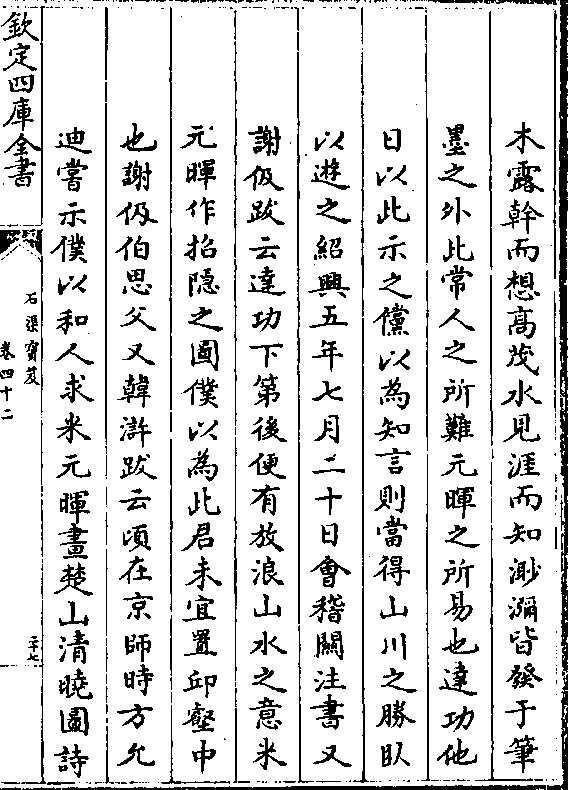 木露幹而想高茂水見涯而知渺瀰皆發于筆
墨之外此常人之所難元暉之所易也達功他
日以此示之儻以為知言則當得山川之勝臥
以遊之紹興五年七月二十日會稽關注書又
謝伋跋云達功下第後便有放浪山水之意米
元暉作招隠之圖僕以為此君未宜置邱壑中
也謝伋伯思父又韓滸跋云頃在京師時方允
迪嘗示僕以和人求米元暉畫楚山清曉圖詩
欽定四庫全書
石渠寶笈
卷四十二
二十七